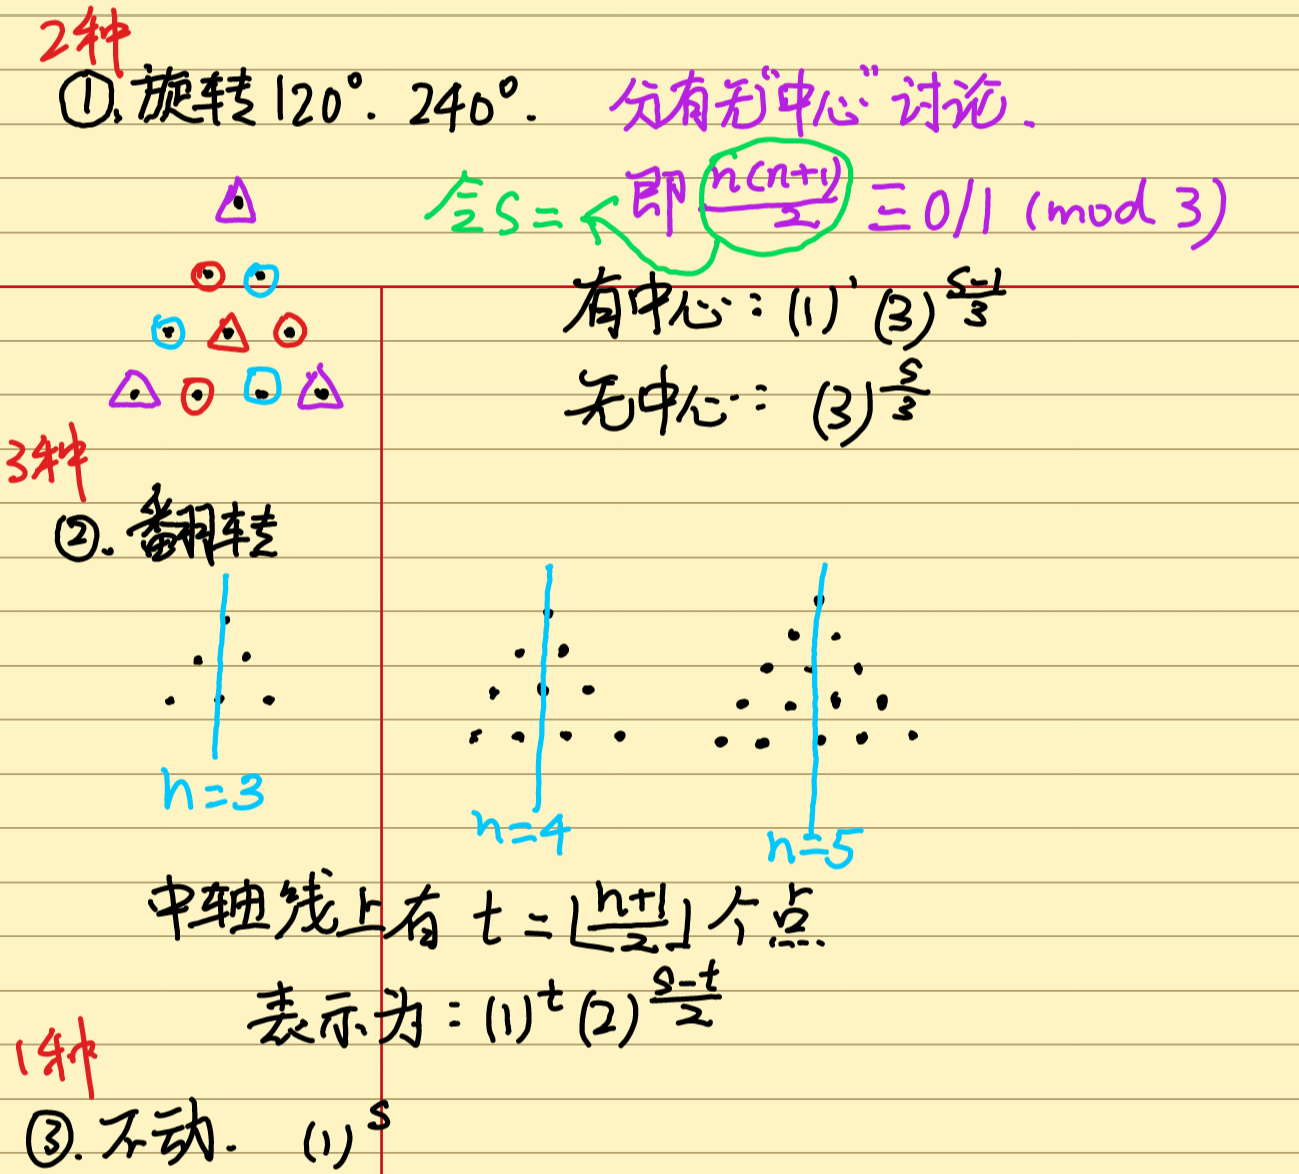 2种
①. 旋转120°. 240°. 分有无"中心"讨论.
令S= 即 n(n+1)/2 ≡ 0/1 (mod 3)
有中心: (1)¹ (3)^((S-1)/3)
无中心: (3)^(S/3)
3种
②. 翻转
n=3 n=4 n=5
中轴线上有 t=⌊(n+1)/2⌋ 个点.
表示为: (1)^t (2)^((S-t)/2)
1种
③. 不动. (1)^S